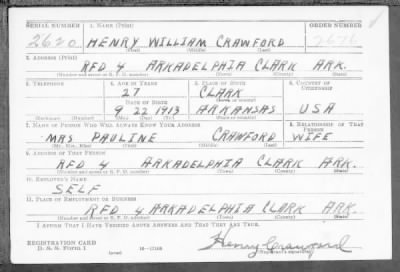 SERIAL NUMBER 1. NAME (Print) ORDER NUMBER
2620 HENRY WILLIAM CRAWFORD 2676
(First) (Middle) (Last)
2. ADDRESS (Print)
RFD 4 ARKADELPHIA CLARK ARK.
(Number and street or R. F. D. number) (Town) (County) (State)
3. TELEPHONE 4. AGE IN YEARS 5. PLACE OF BIRTH 6. COUNTRY OF CITIZENSHIP
27 CLARK
DATE OF BIRTH (Town or county)
9 22 1913 ARKANSAS USA
(Exchange) (Number) (Mo.) (Day) (Yr.) (State or country)
7. NAME OF PERSON WHO WILL ALWAYS KNOW YOUR ADDRESS 8. RELATIONSHIP OF THAT PERSON
MRS PAULINE CRAWFORD WIFE
(Mr., Mrs., Miss) (First) (Middle) (Last)
9. ADDRESS OF THAT PERSON
RFD 4 ARKADELPHIA CLARK ARK.
(Number and street or R. F. D. number) (Town) (County) (State)
10. EMPLOYER'S NAME
SELF
11. PLACE OF EMPLOYMENT OR BUSINESS
RFD 4 ARKADELPHIA CLARK ARK.
(Number and street or R. F. D. number) (Town) (County) (State)
I AFFIRM THAT I HAVE VERIFIED ABOVE ANSWERS AND THAT THEY ARE TRUE.
REGISTRATION CARD Henry Crawford
D. S. S. Form 1 (Registrant's signature)